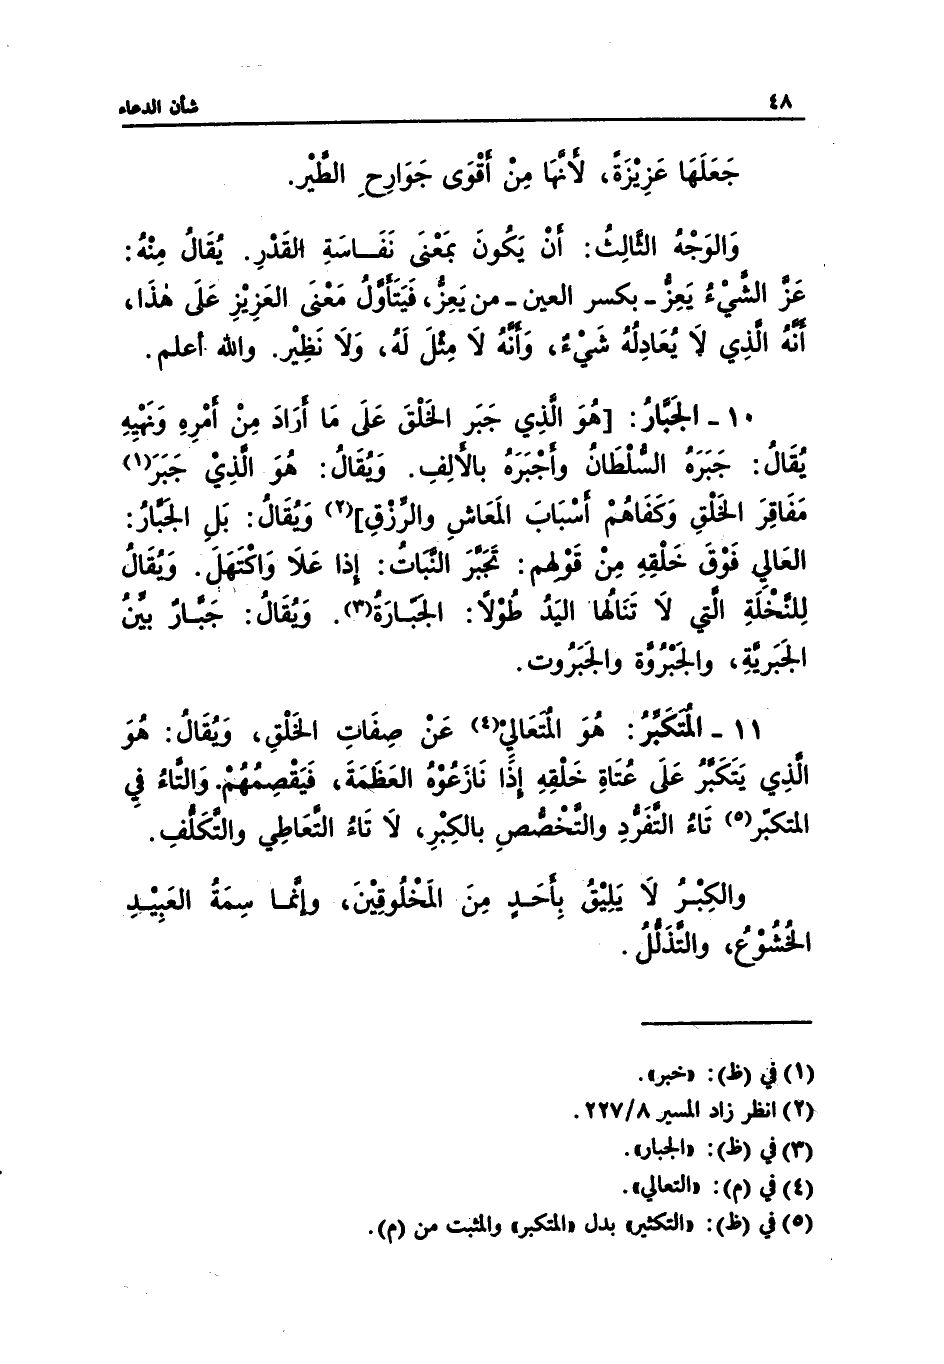 ٤٨ شأن الدعاء
جَعَلَهَا عَزِيْزَةً، لأَنَّهَا مِنْ أَقْوَى جَوَارِحِ الطَّيْرِ.
وَالوَجْهُ الثَّالِثُ: أَنْ يَكُونَ بِمَعْنَى نَفَـاسَةِ القَدْرِ. يُقَالُ مِنْهُ:
عَزَّ الشَّيْءُ يَعِزُّ ـ بكسر العين ـ من يَعِزُّ، فَيَتَأَوَّلُ مَعْنَى العَزِيْزِ عَلَى هٰذَا،
أَنَّهُ الَّذِي لَا يُعَادِلُهُ شَيْءٌ، وَأَنَّهُ لَا مِثْلَ لَهُ، وَلَا نَظِيْر. والله أعلم.
١٠ ـ الجَبَّارُ: [هُوَ الَّذِي جَبَر الخَلْقَ عَلَى مَا أَرَادَ مِنْ أَمْرِهِ وَنَهْيِهِ
يُقَالُ: جَبَرَهُ السُّلْطَانُ وأَجْبَرَهُ بالأَلِفِ. وَيُقَالُ: هُوَ الَّذِيْ جَبَرَ(١)
مَفَاقِرَ الخَلْقِ وَكَفَاهُمْ أَسْبَابَ المَعَاشِ والرِّزْقِ](٢) وَيُقَالُ: بَلِ الجَبَّارُ:
العَالِي فَوْقَ خَلْقِهِ مِنْ قَوْلِهم: تَجَبَّرَ النَّبَاتُ: إذا عَلَا وَاكْتَهَلَ. وَيُقَالُ
لِلنَّخْلَةِ الَّتي لَا تَنَالُها اليَدُ طُوْلًا: الجَبَّارَةُ(٣). وَيُقَالُ: جَبَّارٌ بيِّنُ
الجَبَرِيَّةِ، والجَبْرُوَّة والجَبَرُوت.
١١ ـ المُتَكَبِّرُ: هُوَ المُتَعَالِيْ(٤) عَنْ صِفَاتِ الخَلْقِ، وَيُقَالُ: هُوَ
الَّذِي يَتَكَبَّرُ عَلَى عُتَاةِ خَلْقِهِ إِذَا نَازَعُوْهُ العَظَمَةَ، فَيَقْصِمُهُمْ. وَالتَّاءُ فِي
المتكبّر(٥) تَاءُ التَّفَرُّدِ والتَّخَصُّصِ بالكِبْرِ، لَا تَاءُ التَّعَاطِي والتَّكَلُّفِ.
والكِبْرُ لَا يَلِيْقُ بِأَحَـدٍ مِنَ المَخْلُوقِيْنَ، وإنَّمـا سِمَةُ العَبِيْـدِ
الخُشُوْعُ، والتَّذَلُّلُ.
(١) في (ظ): «خبر».
(٢) انظر زاد المسير ٢٢٧/٨.
(٣) في (ظ): «الجبار».
(٤) في (م): «التعالي».
(٥) في (ظ): «التكثير» بدل «المتكبر» والمثبت من (م).